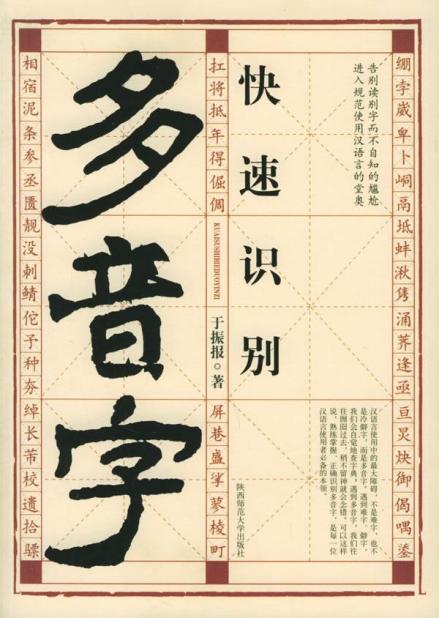 快速识别
多音字
KUAISUSHIBIEDUOYINZI
于振报。著
告别读别字而不自知的尴尬
进入规范使用汉语言的堂奥
汉语言使用中的最大障碍，不是难字，也不
是冷僻字，而是多音字。遇到难字、僻字，
我们会自觉地查字典，遇到多音字，我们往
往囫囵过去，稍不留神就会念错。可以这样
说，熟练掌握、正确识别多音字，是每一位
汉语言使用者必备的本领。
陕西师范大学出版社
绷孛崴卑卜峒鬲坻蚌湫隽涌荠逢亟亘炅炔御偈喁鎏
扛将抵年得倔倜
屏巷盛挲蓼棱町
相宿泥条参丞匮靓没刺鲭佗予种夯绰长芾校遗拾骠